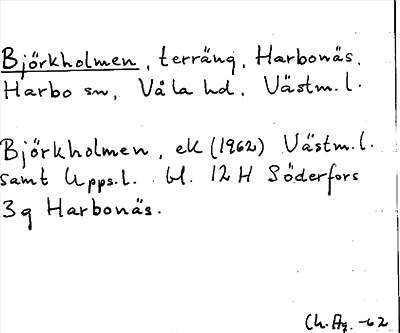 Björkholmen, terräng, Harbonäs,
Harbo sn, Våla hd, Västm.l.
Björkholmen, ek (1962) Västm.l.
samt Upps.l. bl. 12 H Söderfors
3g Harbonäs.
Ch. Ag. -62